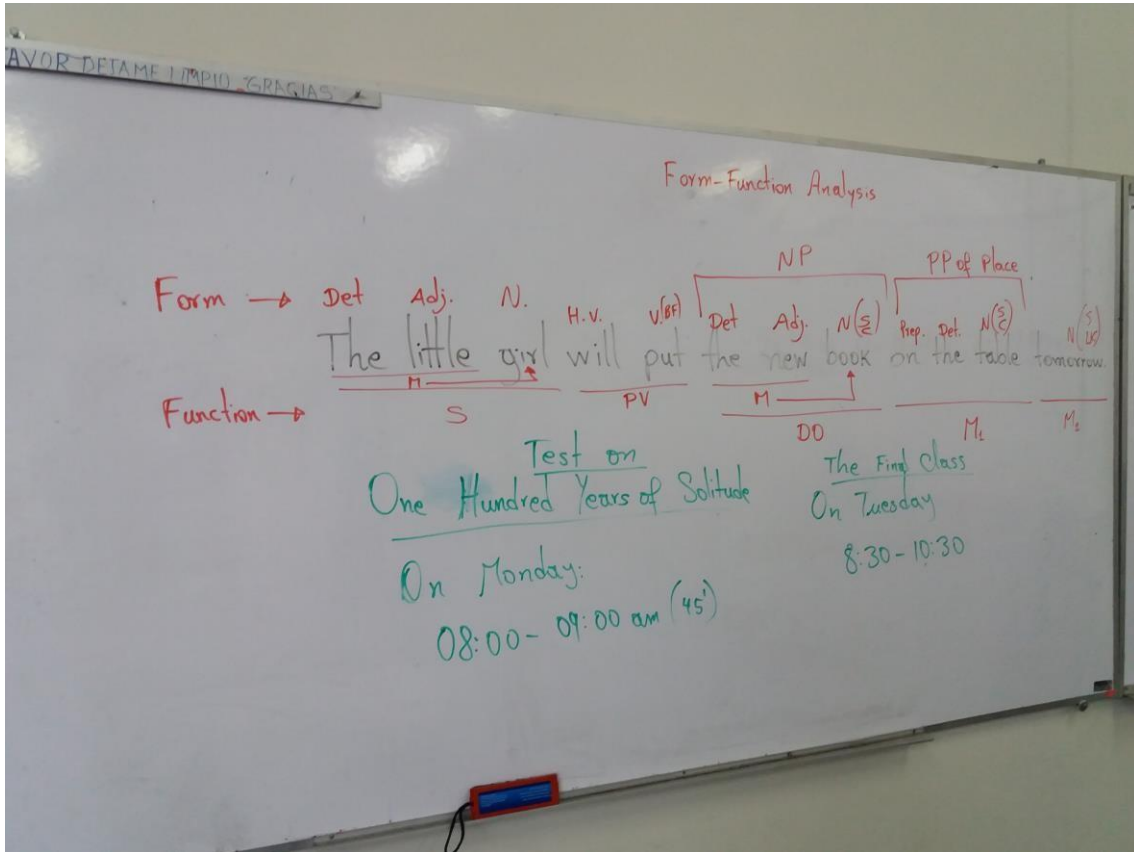 AVOR DEJAME LIMPIO GRACIAS
Form-Function Analysis
NP PP of Place.
Form → Det Adj. N. H.V. V.(BF) Det Adj. N(S/C) Prep. Det. N(S/C) N(S/UC)
The little girl will put the new book on the table tomorrow.
M M
Function → S PV DO M₁ M₂
Test on
One Hundred Years of Solitude
On Monday:
08:00 - 09:00 am (45')
The Final Class
On Tuesday
8:30 - 10:30